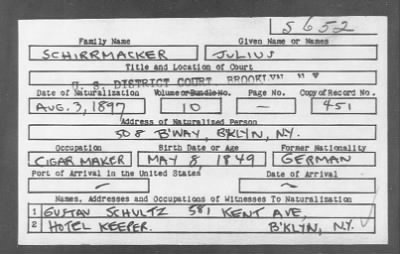 S 652
Family Name Given Name or Names
SCHIRRMACKER JULIUS
Title and Location of Court
U. S. DISTRICT COURT, BROOKLYN N Y
Date of Naturalization Volume or Bundle No. Page No. Copy of Record No.
AUG. 3, 1897 10 — 451
Address of Naturalized Person
508 B'WAY, B'KLYN, N.Y.
Occupation Birth Date or Age Former Nationality
CIGAR MAKER MAY 8 1849 GERMAN
Port of Arrival in the United States Date of Arrival
— ~
Names, Addresses and Occupations of Witnesses To Naturalization
1 GUSTAV SCHULTZ 581 KENT AVE,
2 HOTEL KEEPER. B'KLYN, N.Y.